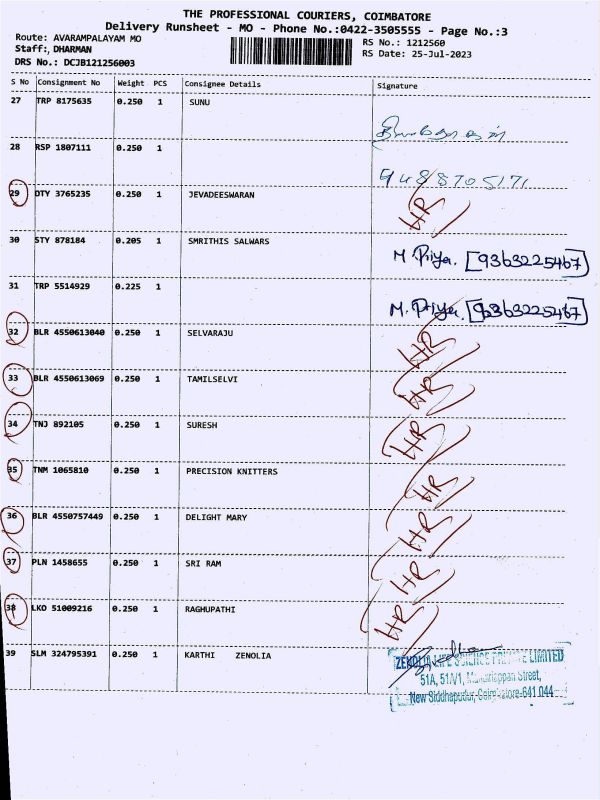 THE PROFESSIONAL COURIERS, COIMBATORE
Delivery Runsheet - MO - Phone No.:0422-3505555 - Page No.:3
Route: AVARAMPALAYAM MO RS No.: 1212560
Staff:, DHARMAN RS Date: 25-Jul-2023
DRS No.: DCJB121256003
S No Consignment No Weight PCS Consignee Details Signature
27 TRP 8175635 0.250 1 SUNU
28 RSP 1807111 0.250 1
9488705171
29 DTY 3765235 0.250 1 JEVADEESWARAN HR
30 STY 878184 0.205 1 SMRITHIS SALWARS
M Priya. [9363225467]
31 TRP 5514929 0.225 1
M. Priya [9363225467]
32 BLR 4550613040 0.250 1 SELVARAJU HR
33 BLR 4550613069 0.250 1 TAMILSELVI HR
34 TNJ 892105 0.250 1 SURESH HR
35 TNM 1065810 0.250 1 PRECISION KNITTERS HR
36 BLR 4550757449 0.250 1 DELIGHT MARY HR
37 PLN 1458655 0.250 1 SRI RAM HR
38 LKO 51009216 0.250 1 RAGHUPATHI HR
39 SLM 324795391 0.250 1 KARTHI ZENOLIA
ZENOLIA LIFE SCIENCE PRIVATE LIMITED
51A, 51A/1, Street,
New Siddhapudur, Coimbatore-641 044